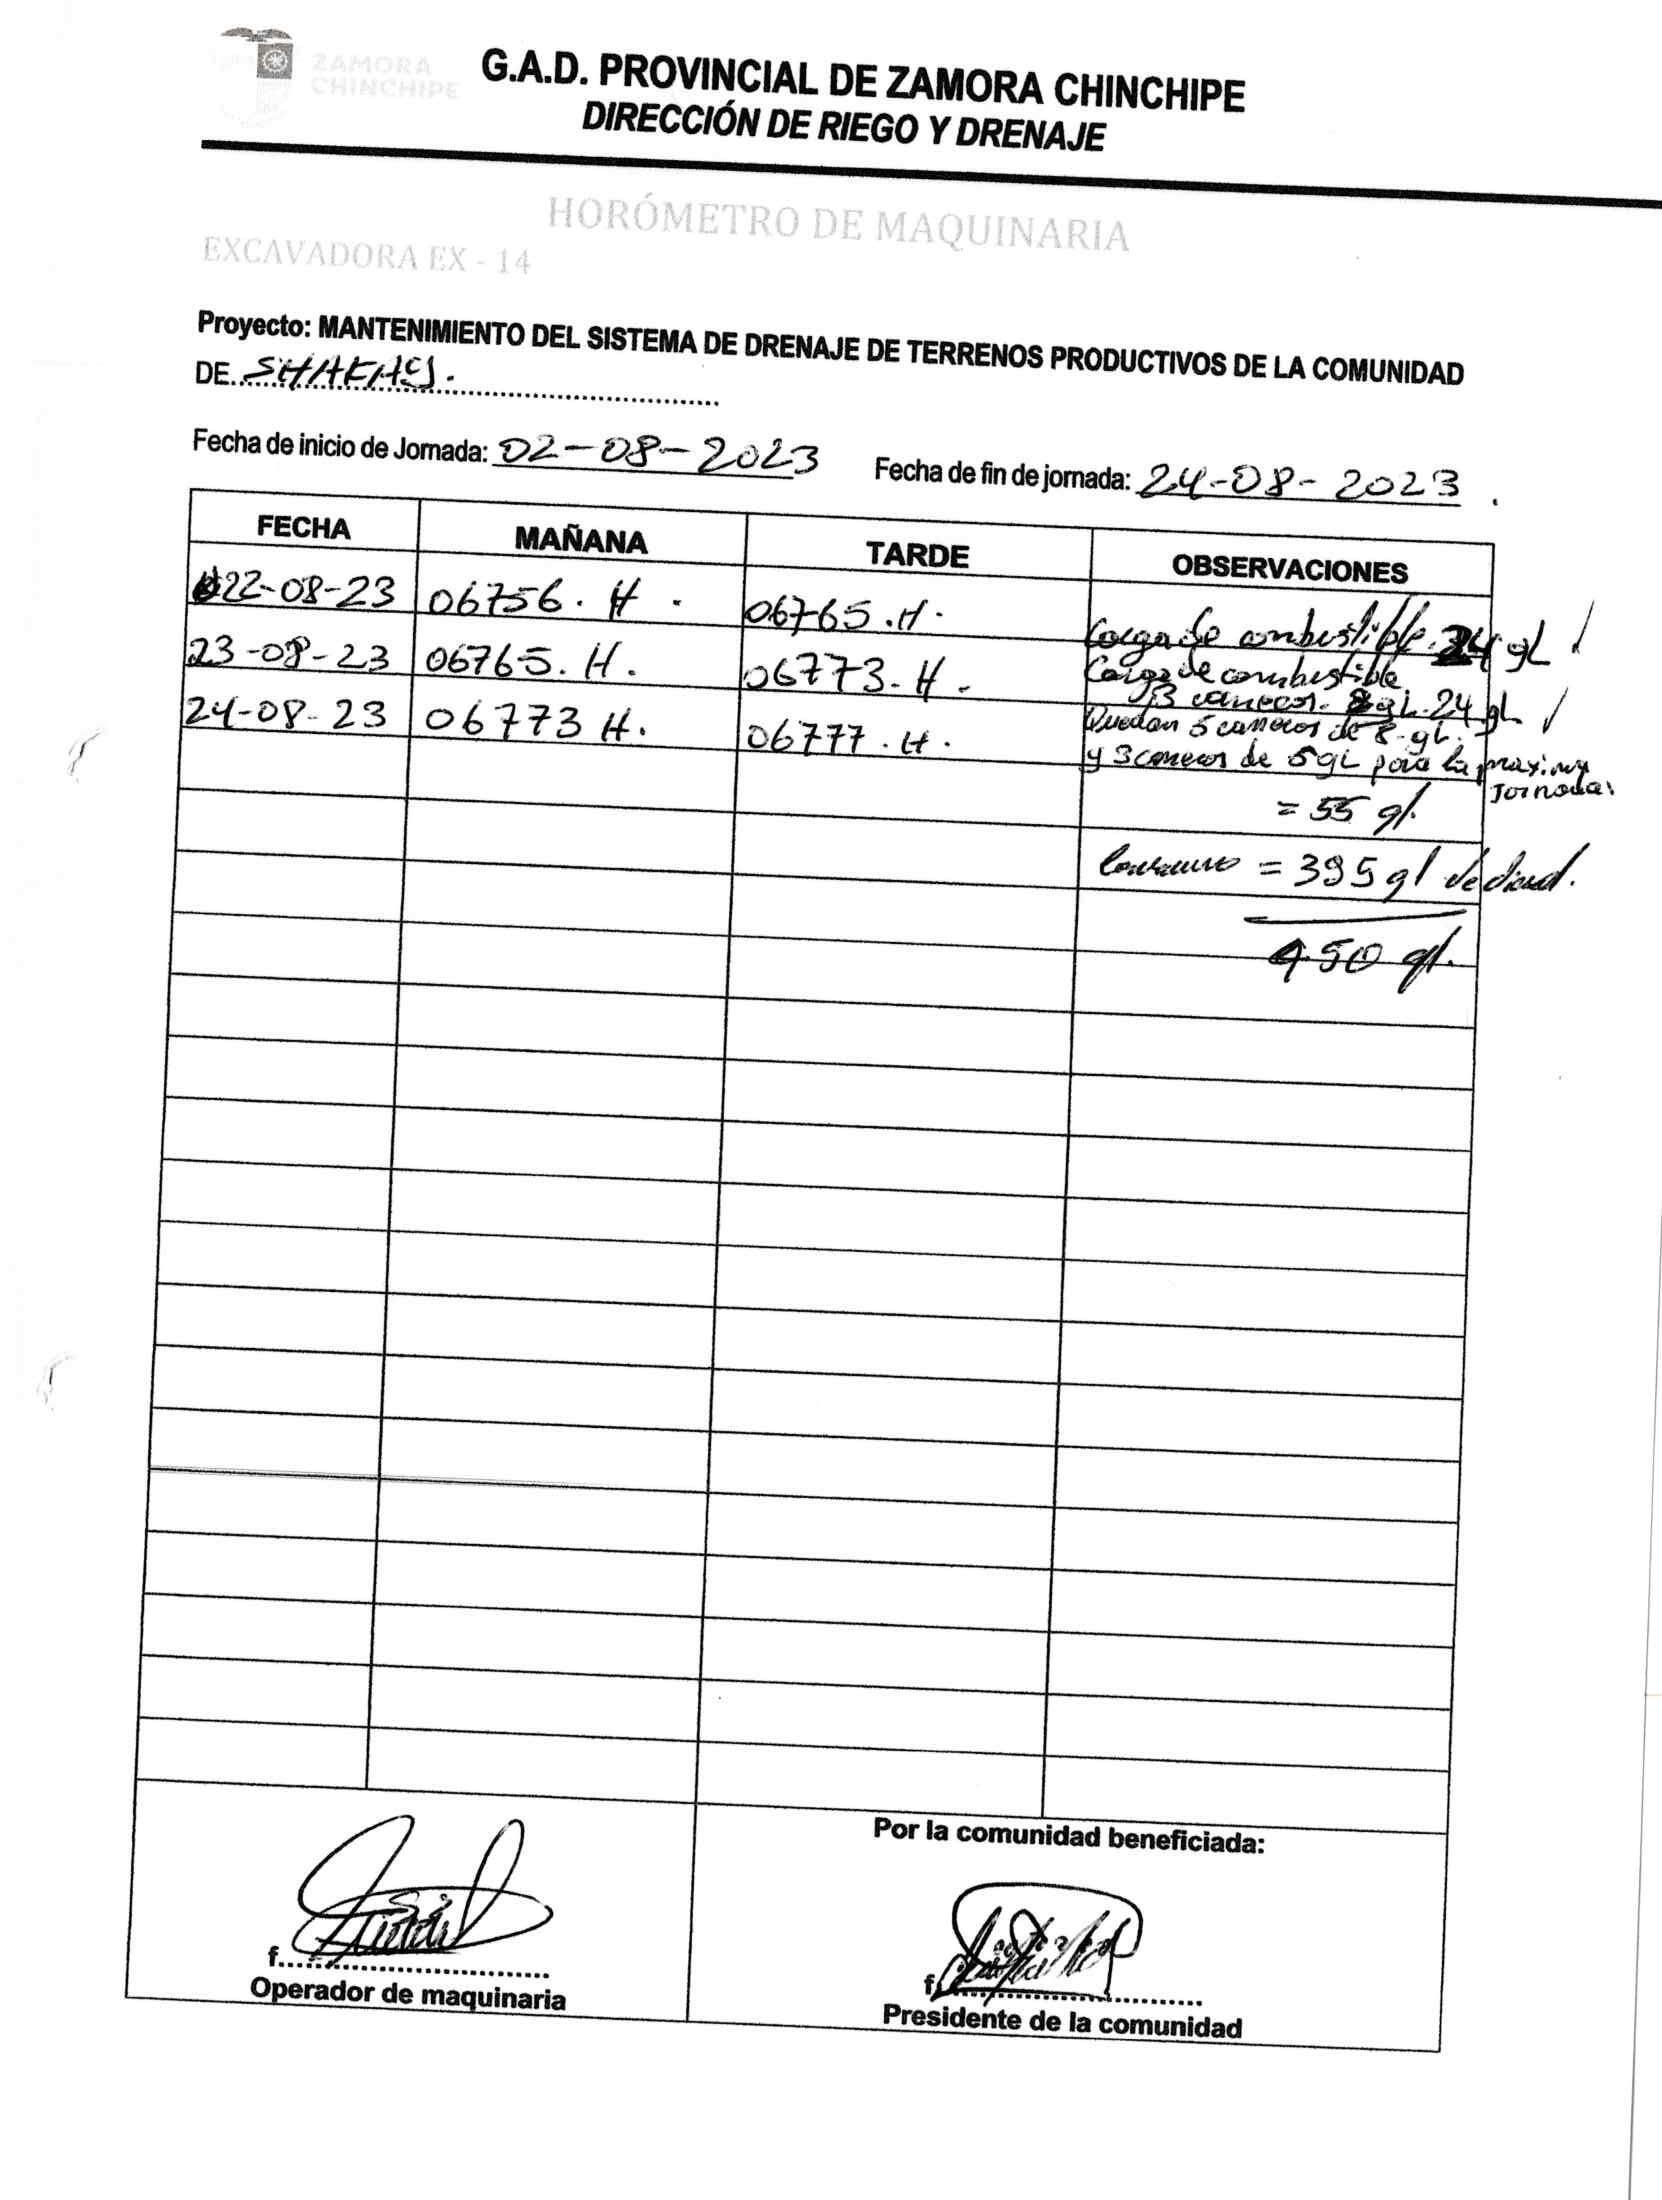 ZAMORA
CHINCHIPE
G.A.D. PROVINCIAL DE ZAMORA CHINCHIPE
DIRECCIÓN DE RIEGO Y DRENAJE
HORÓMETRO DE MAQUINARIA
EXCAVADORA EX - 14
Proyecto: MANTENIMIENTO DEL SISTEMA DE DRENAJE DE TERRENOS PRODUCTIVOS DE LA COMUNIDAD
DE
Fecha de inicio de Jornada: 02-08-2023 Fecha de fin de jornada: 24-08-2023.
FECHA MAÑANA TARDE OBSERVACIONES
22-08-23 06756. H. 06765. H. Carga de combustible 24 gL
23-08-23 06765. H. 06773. H. Carga de combustible
3 canecos. 8 gL. 24 gL
24-08-23 06773 H. 06777. H. Quedan 5 canecos de 8 gL.
y 3 canecos de 5 gL para la proxima
Jornada.
= 55 gl.
Consumo = 395 gl de diesel.
450 gl.
Por la comunidad beneficiada:
f.
Operador de maquinaria
f.
Presidente de la comunidad